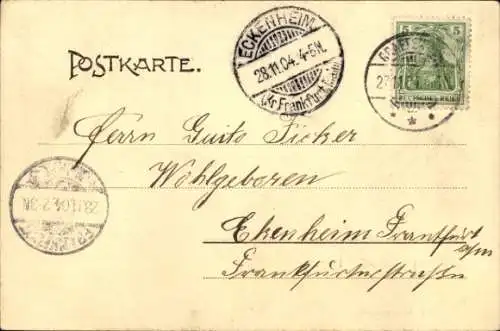 POSTKARTE.
ECKENHEIM
28.11.04. 4-5N.
(Kr. Frankfurt
5
DEUTSCHES REICH
27.11.04
28.11.04. 2-3N
Herrn Guito Ficker
Wohlgeboren
Ekenheim Frankfurt
a/m
Frankfurterstraße